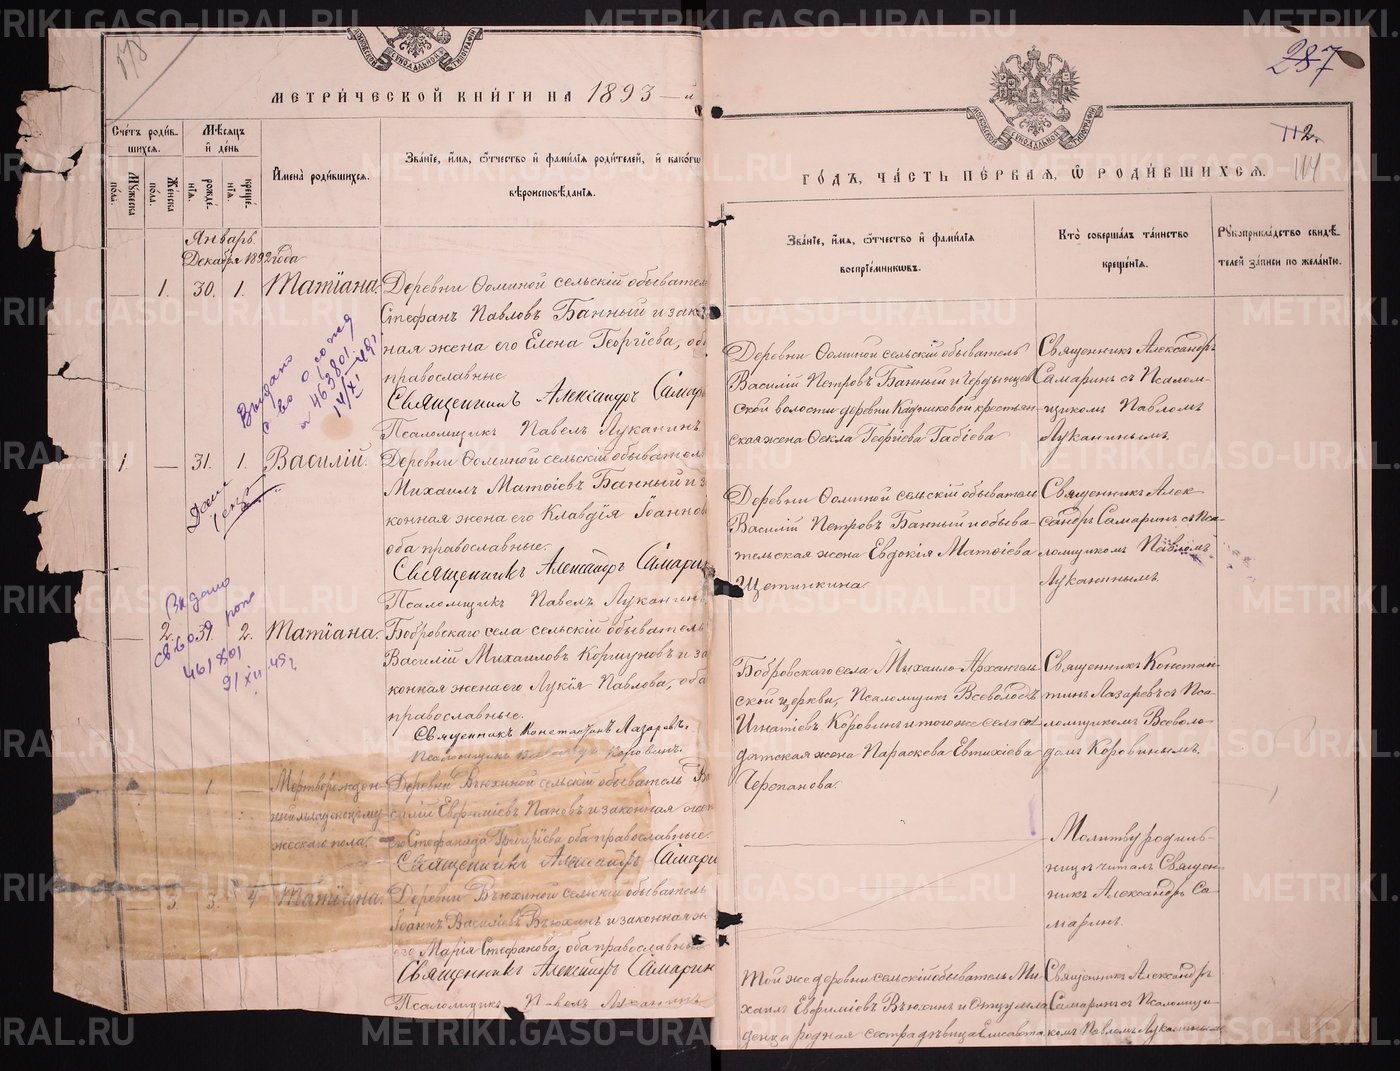 287
МЕТРИЧЕСКОЙ КНИГИ НА 1893-й
Счетъ родившихся.
Мужеска пола.
Женска пола.
Мѣсяцъ и день
рожденія.
крещенія.
Имена родившихся.
Званіе, имя, отчество и фамилія родителей, и какого
вѣроисповѣданія.
Январь
Декабря 1892 года
— 1. 30. 1. Татіана. Деревни Ѳоминой сельскій обыватель
Стефанъ Павловъ Банный и закон
ная жена его Елена Георгіева, оба
православные
Священникъ Александръ Самар
Псаломщикъ Павелъ Луканинъ
Выдано
с-во о рожд
№ 463801
14/XI 49г
1. — 31. 1. Василій. Деревни Ѳоминой сельскій обывател
Михаилъ Матѳіевъ Банный и за
конная жена его Клавдія Іоаннов
оба православные.
Священникъ Александръ Самарин
Псаломщикъ Павелъ Луканинъ
Выдано
461801
91 XII 49г
— 2. 31. 2. Татіана. Бобровскаго села сельскій обыватель
Василій Михаиловъ Коршуновъ и за
конная жена его Лукія Павлова, оба
православные.
Священникъ Константинъ Лазаревъ.
Псаломщикъ Всеволодъ Коровинъ.
1 — Мертворожден
ный младенецъ му
жескаго пола.
Деревни Вьюхиной сельскій обыватель Ва
силій Евфиміевъ Пановъ и законная жен
его Стефанида Григоріева, оба православные.
Священникъ Александръ Самари
— 3 3. 4 Татіана. Деревни Вьюхиной сельскій обыватель
Іоаннъ Василіевъ Вьюхинъ и законная ж
его Марія Стефанова, оба православны
Священникъ Александръ Самарин
Псаломщикъ Павелъ Луканинъ
МОСКОВСКОЙ СѴНОДАЛЬНОЙ ТИПОГРАФІИ
112.
114
ГОДЪ, ЧАСТЬ ПЕРВАЯ, О РОДИВШИХСЯ.
Званіе, имя, отчество и фамилія
воспріемниковъ.
Кто совершалъ таинство
крещенія.
Рукоприкладство свидѣ-
телей записи по желанію.
Деревни Ѳоминой сельскій обыватель
Василій Петровъ Банный и Чердынцев
ской волости деревни Кадниковой крестьян
ская жена Ѳекла Георгіева Габіева
Священникъ Александръ
Самаринъ съ Псалом-
щикомъ Павломъ
Луканинымъ.
Деревни Ѳоминой сельскій обыватель
Василій Петровъ Банный и обыва-
тельская жена Евдокія Матѳіева
Щетинкина.
Священникъ Алек-
сандръ Самаринъ съ Пса-
ломщикомъ Павломъ
Луканинымъ.
Бобровскаго села Михаило-Архангель
ской церкви, Псаломщикъ Всеволодъ
Игнатіевъ Коровинъ и того же села сол
датская жена Параскева Евтихіева
Черепанова.
Священникъ Констан-
тинъ Лазаревъ съ Пса-
ломщикомъ Всеволо-
домъ Коровинымъ.
Молитву родиль-
ницѣ читалъ Священ-
никъ Александръ Са-
маринъ.
Той же деревни сельскій обыватель Ми-
хаилъ Евфиміевъ Вьюхинъ и
родная сестра дѣвица Елисавета
Священникъ Александръ
Самаринъ съ Псаломщи-
комъ Павломъ Луканинымъ
METRIKI.GASO-URAL.RU